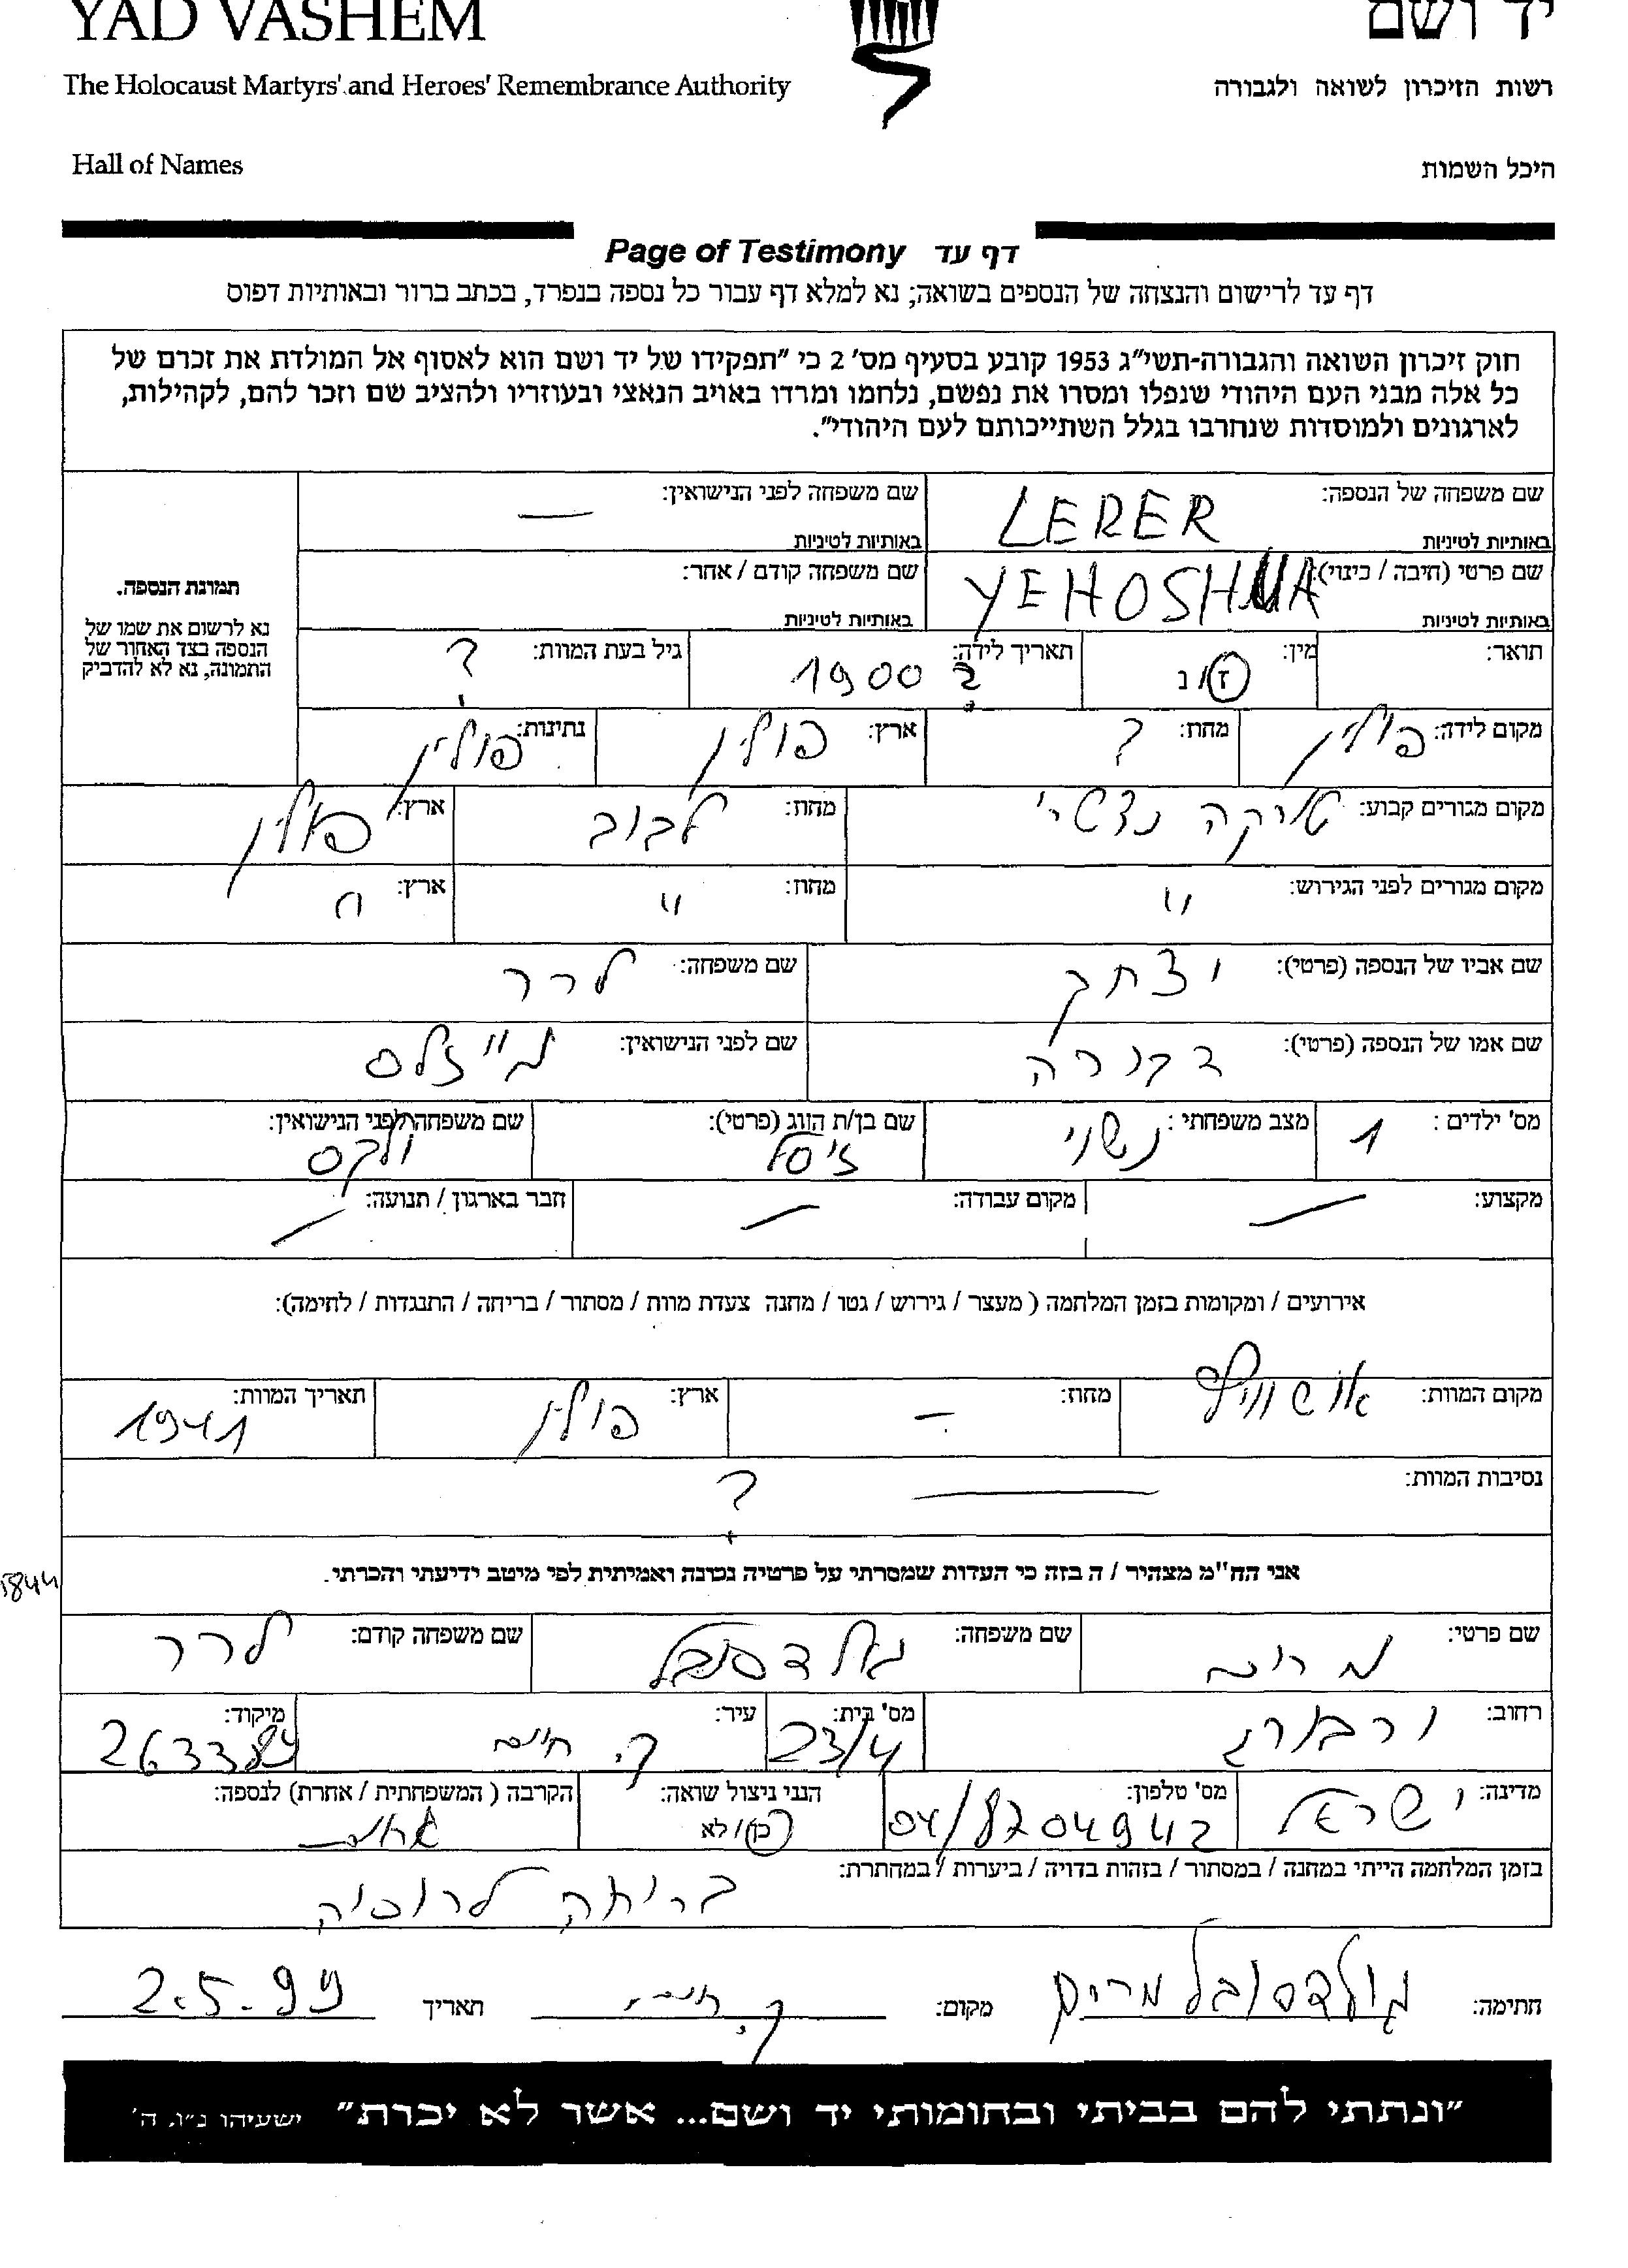 YAD VASHEM
יד ושם
The Holocaust Martyrs' and Heroes' Remembrance Authority
רשות הזיכרון לשואה ולגבורה
Hall of Names
היכל השמות
Page of Testimony דף עד
דף עד לרישום והנצחה של הנספים בשואה; נא למלא דף עבור כל נספה בנפרד, בכתב ברור ובאותיות דפוס
חוק זיכרון השואה והגבורה-תשי"ג 1953 קובע בסעיף מס' 2 כי "תפקידו של יד ושם הוא לאסוף אל המולדת את זכרם של
כל אלה מבני העם היהודי שנפלו ומסרו את נפשם, נלחמו ומרדו באויב הנאצי ובעוזריו ולהציב שם וזכר להם, לקהילות,
לארגונים ולמוסדות שנחרבו בגלל השתייכותם לעם היהודי".
שם משפחה של הנספה: LERER באותיות לטיניות
שם משפחה לפני הנישואין: — באותיות לטיניות
שם פרטי (חיבה / כינוי): YEHOSHUA באותיות לטיניות
שם משפחה קודם / אחר: באותיות לטיניות
תמונת הנספה.
נא לרשום את שמו של
הנספה בצד האחור של
התמונה, נא לא להדביק
תואר:
מין: ז/נ
תאריך לידה: 1900 ?
גיל בעת המוות: ?
מקום לידה: פולין
מחוז: ?
ארץ: פולין
נתינות: פולין
מקום מגורים קבוע:
מחוז: לבוב
ארץ: פולין
מקום מגורים לפני הגירוש: "
מחוז: "
ארץ: "
שם אביו של הנספה (פרטי): יצחק
שם משפחה: לרר
שם אמו של הנספה (פרטי): דבורה
שם לפני הנישואין: מייזלס
מס' ילדים: 1
מצב משפחתי: נשוי
שם בן/ת הזוג (פרטי): זיסל
שם משפחה לפני הנישואין: ולקס
מקצוע: —
מקום עבודה: —
חבר בארגון / תנועה: —
אירועים / ומקומות בזמן המלחמה ( מעצר / גירוש / גטו / מחנה צעדת מוות / מסתור / בריחה / התנגדות / לחימה):
מקום המוות: אושוויץ
מחוז: -
ארץ: פולין
תאריך המוות: 1941
נסיבות המוות: — ?
אני הח"מ מצהיר / ה בזה כי העדות שמסרתי על פרטיה נכונה ואמיתית לפי מיטב ידיעתי והכרתי.
שם פרטי: מרים
שם משפחה: גולדסובל
שם משפחה קודם: לרר
רחוב: ורבורג
מס' בית: 23/4
עיר: ק. חיים
מיקוד:
מדינה: ישראל
מס' טלפון: 04/8704942
הנני ניצול שואה: כן / לא
הקרבה ( המשפחתית / אחרת) לנספה:
בזמן המלחמה הייתי במחנה / במסתור / בזהות בדויה / ביערות / במחתרת:
בריחה לרוסיה
חתימה: גולדסובל מרים
מקום: ק. חיים
תאריך 2.5.99
"ונתתי להם בביתי ובחומותי יד ושם... אשר לא יכרת" ישעיהו נ"ו, ה'